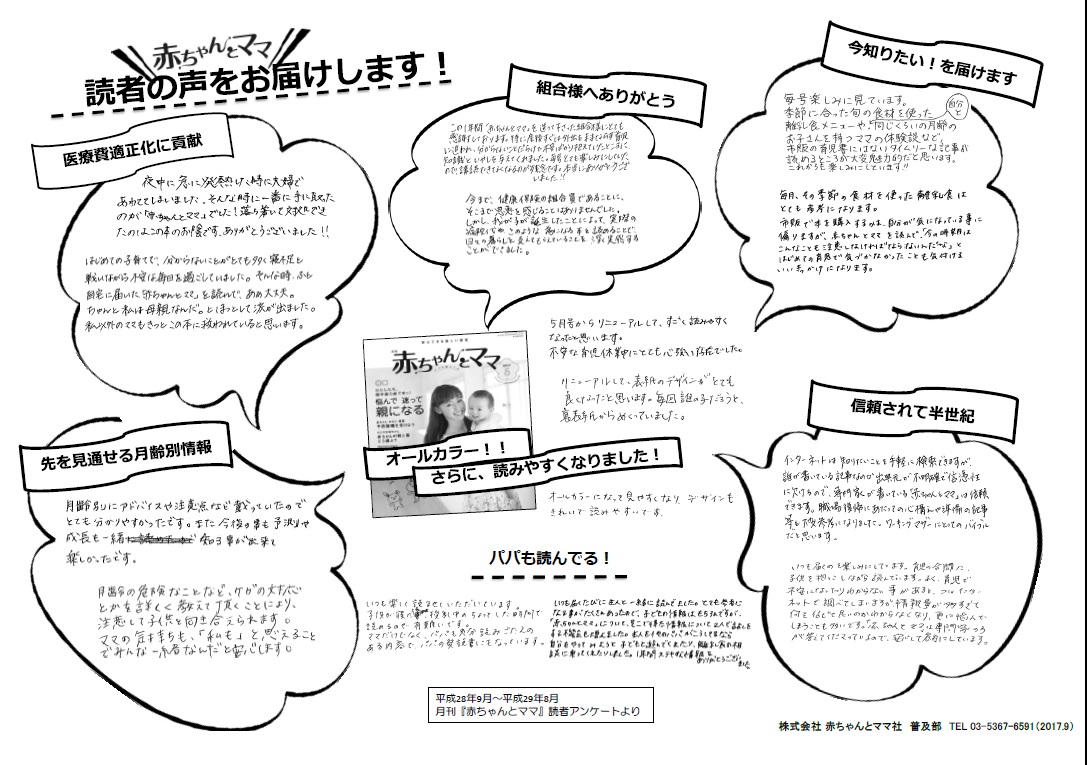 赤ちゃんとママ
読者の声をお届けします！
医療費適正化に貢献
夜中に急に発熱した時に夫婦で
あわててしまいました。そんな時に一番に手に取った
のが「赤ちゃんとママ」でした！落ち着いて対処でき
たのはこの本のお陰です。ありがとうございました！！
はじめての子育てで、分からないことがとても多く寝不足と
戦いながら不安な毎日を過ごしていました。そんな時、ふと
自宅に届いた「赤ちゃんとママ」を読んで、あぁ大丈夫。
ちゃんと私は母親なんだ。とほっとして涙が出ました。
私以外のママもきっとこの本に救われていると思います。
組合様へありがとう
この1年間「赤ちゃんとママ」を送って下さった組合様にとても
感謝しております。
今まで、健康保険の組合員であることに、
そこまで恩恵を感じることはありませんでした。
しかし、我が子が誕生したことによって、実際の
日々の暮らしを支えてもらっていることを
ことができました。
今知りたい！を届けます
毎号楽しみに見ています。
季節に合った旬の食材を使った
離乳食メニューや、自分と同じくらいの月齢の
お子さんを持つママの体験談など、
市販の育児書にはないタイムリーな記事が
読めるところが大変魅力的だと思います。
これからも楽しみにしています!!
毎月、その季節の食材を使った離乳食は
とても参考になります。
市販で本を購入するのは、自分が気になっている事に
偏りますが、赤ちゃんとママを読んで、「今の時期は
こんなことも注意しなければならないんだ〜」と
はじめての育児で気づかなかったことも気付ける
いいきっかけになります。
赤ちゃんとママ
悩んで 迷って
親になる
5月号からリニューアルして、すごく読みやすく
なったと思います。
不安な育児休業中にとても心強い存在でした。
リニューアルして、表紙のデザインがとても
良くなったと思います。毎回誰の子だろうと、
裏表紙からめくっていました。
オールカラー！！
さらに、読みやすくなりました！
オールカラーになって見やすくなり、デザインも
きれいで読みやすいです。
先を見通せる月齢別情報
月齢別にアドバイスや注意点など載っていたので
とても分かりやすかったです。また今後の事も予測や
成長も一緒に 知る事が出来て
楽しかったです。
月齢の危険なことなど、ケガの対応
とかを詳しく教えて頂くことにより、
注意して子供と向き合えます。
ママの気持ちも、「私も」と思えること
でみんな一緒なんだと安心します。
信頼されて半世紀
インターネットは知りたいことを手軽に検索できますが、
誰が書いている記事なのか出典元が不明確で信憑性
に欠けるので、専門家が書いている「赤ちゃんとママ」は信頼
できます。職場復帰にあたっての心構えや準備の記事
等も大変参考になりました。ワーキングマザーにとってのバイブル
だと思います。
いつも届くのを楽しみにしています。育児の合間に、
子供を抱っこしながら読んでいます。よく、育児で
不安になったりわからない事があると、ついインター
ネットで調べてしまいますが情報量が多すぎて
何を信じて良いのかわからなくなり、更に悩んで
しまうことも多いです。赤ちゃんとママは専門家の方
が答えてくださっているので、安心して参考にしています。
パパも読んでる！
いつも楽しく読ませていただいています。
ママだけでなく、パパにも
平成28年9月～平成29年8月
月刊『赤ちゃんとママ』読者アンケートより
株式会社 赤ちゃんとママ社 普及部 TEL 03-5367-6591（2017.9）